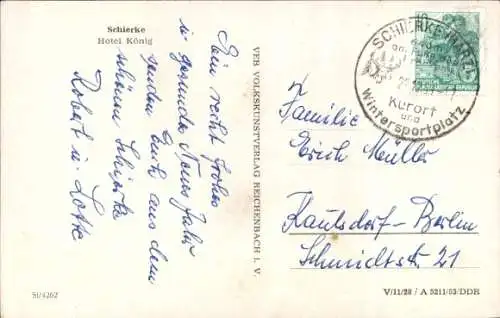 Schierke
Hotel König
Ein recht frohes
u. gesundes Neues Jahr
senden Euch aus dem
schönen Schierke
Robert u. Lotte
51/4262
VEB VOLKSKUNSTVERLAG REICHENBACH I. V.
10
SCHIERKE (HARZ)
Kurort
und
Wintersportplatz
Familie
Erich Müller
Kaulsdorf-Berlin
Schmidtstr. 21
V/11/28 / A 5211/53/DDR